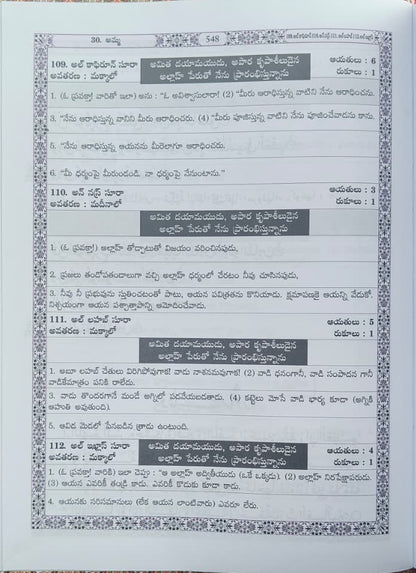 30. అమ్మ
548
109. అల్ కాఫిరూన్ సూరా
అవతరణ : మక్కాలో
అమిత దయామయుడు, అపార కృపాశీలుడైన
అల్లాహ్ పేరుతో నేను ప్రారంభిస్తున్నాను
ఆయతులు : 6
రుకూలు : 1
1. (ఓ ప్రవక్తా! వారితో ఇలా) అను : “ఓ అవిశ్వాసులారా! (2) “మీరు ఆరాధిస్తున్న వాటిని నేను ఆరాధించను.
3. “నేను ఆరాధిస్తున్న వానిని మీరు ఆరాధించరు. (4) “మీరు పూజిస్తున్న వాటిని నేను పూజించేవాడను కాను.
5. “నేను ఆరాధిస్తున్న ఆయనను మీరెలాగూ ఆరాధించరు.
6. “మీ ధర్మంపై మీరుండండి. నా ధర్మంపై నేనుంటాను.”
110. అన్ నస్ర్ సూరా
అవతరణ : మదీనాలో
అమిత దయామయుడు, అపార కృపాశీలుడైన
అల్లాహ్ పేరుతో నేను ప్రారంభిస్తున్నాను
ఆయతులు : 3
రుకూలు : 1
1. (ఓ ప్రవక్తా!) అల్లాహ్ తోడ్పాటుతో విజయం వరించినపుడు,
2. ప్రజలు తండోపతండాలుగా వచ్చి అల్లాహ్ ధర్మంలో చేరటం నీవు చూసినపుడు,
3. నీవు నీ ప్రభువును స్తుతించటంతో పాటు, ఆయన పవిత్రతను కొనియాడు. క్షమాపణకై ఆయన్ని వేడుకో.
నిశ్చయంగా ఆయన పశ్చాత్తాపాన్ని ఆమోదించేవాడు.
111. అల్ లహబ్ సూరా
అవతరణ : మక్కాలో
అమిత దయామయుడు, అపార కృపాశీలుడైన
అల్లాహ్ పేరుతో నేను ప్రారంభిస్తున్నాను
ఆయతులు : 5
రుకూలు : 1
1. అబూ లహబ్ చేతులు విరిగిపోవుగాక! వాడు నాశనమవుగాక! (2) వాడి ధనంగానీ, వాడి సంపాదన గానీ
వాడికేమాత్రం పనికి రాలేదు.
3. వాడు తొందరగానే మండే అగ్నిలో పడవేయబడతాడు. (4) కట్టెలు మోసే వాడి భార్య కూడా (అగ్నికి
ఆహుతి అవుతుంది).
5. ఆవిడ మెడలో పేనబడిన త్రాడు ఉంటుంది.
112. అల్ ఇఖ్లాస్ సూరా
అవతరణ : మక్కాలో
అమిత దయామయుడు, అపార కృపాశీలుడైన
అల్లాహ్ పేరుతో నేను ప్రారంభిస్తున్నాను
ఆయతులు : 4
రుకూలు : 1
1. (ఓ ప్రవక్తా! వారికి) ఇలా చెప్పు : “ఆ అల్లాహ్ అద్వితీయుడు (ఒకే ఒక్కడు). (2) అల్లాహ్ నిరపేక్షాపరుడు.
(3) ఆయన ఎవరికీ తండ్రి కాడు. ఎవరికీ కొడుకు కూడా కాడు.
4. ఆయనకు సరిసమానులు (లేక ఆయన లాంటివారు) ఎవరూ లేరు.